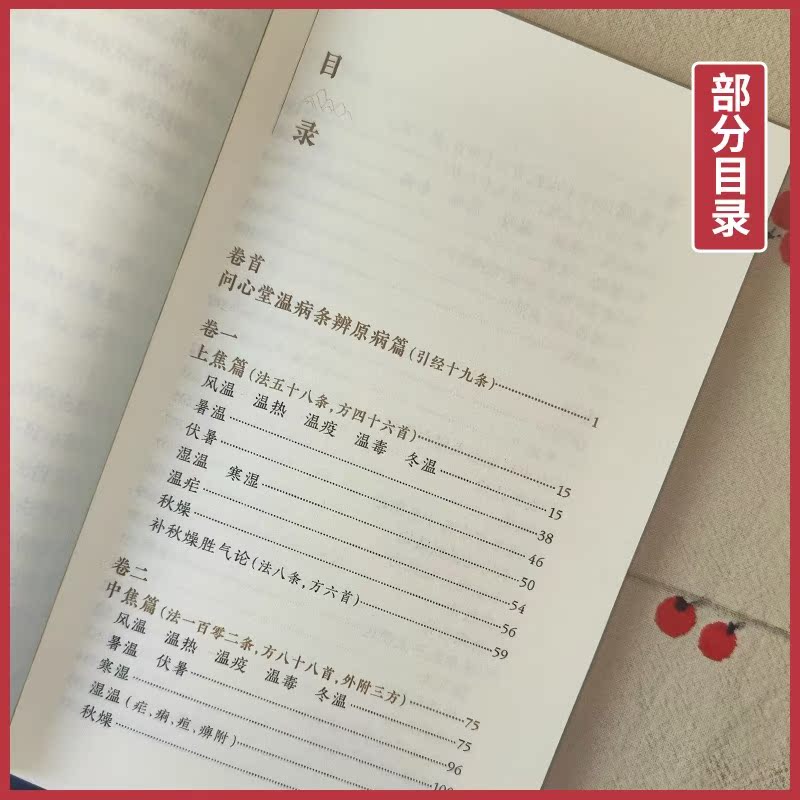 部分目录
目录
卷首
问心堂温病条辨原病篇(引经十九条)……1
卷一
上焦篇(法五十八条,方四十六首)……15
风温 温热 温疫 温毒 冬温……15
暑温……38
伏暑……46
湿温 寒湿……50
温疟……54
秋燥……56
补秋燥胜气论(法八条,方六首)……59
卷二
中焦篇(法一百零二条,方八十八首,外附三方)……75
风温 温热 温疫 温毒 冬温……75
暑温 伏暑……96
寒湿……
湿温(疟、痢、疸、痹附)……
秋燥……